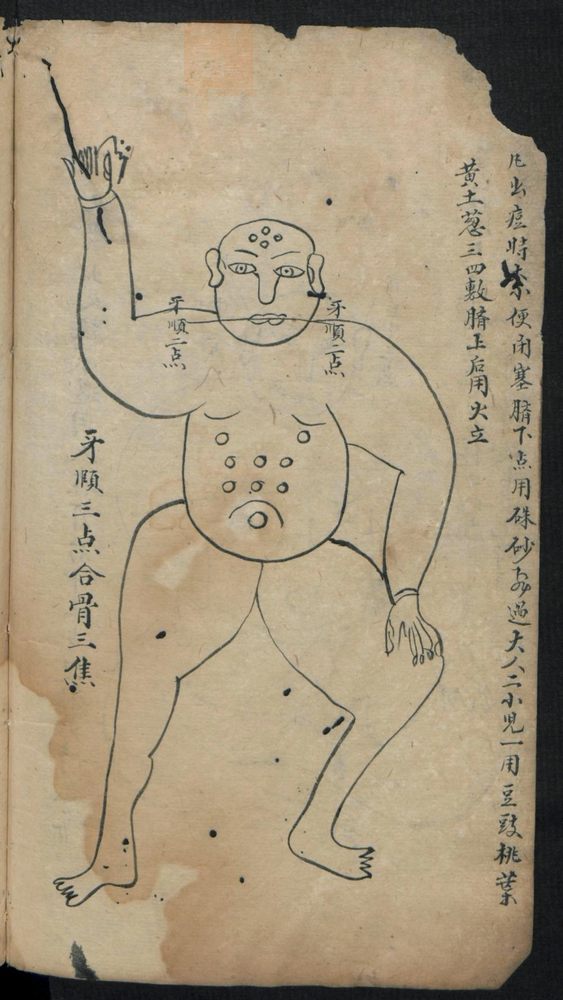 凡出痘時 便閉塞臍下点用硃砂 過大人二小児一用豆豉桃葉
黄土葱三四敷臍上后用火立
牙順二点
牙順二点
牙順三点合骨三焦